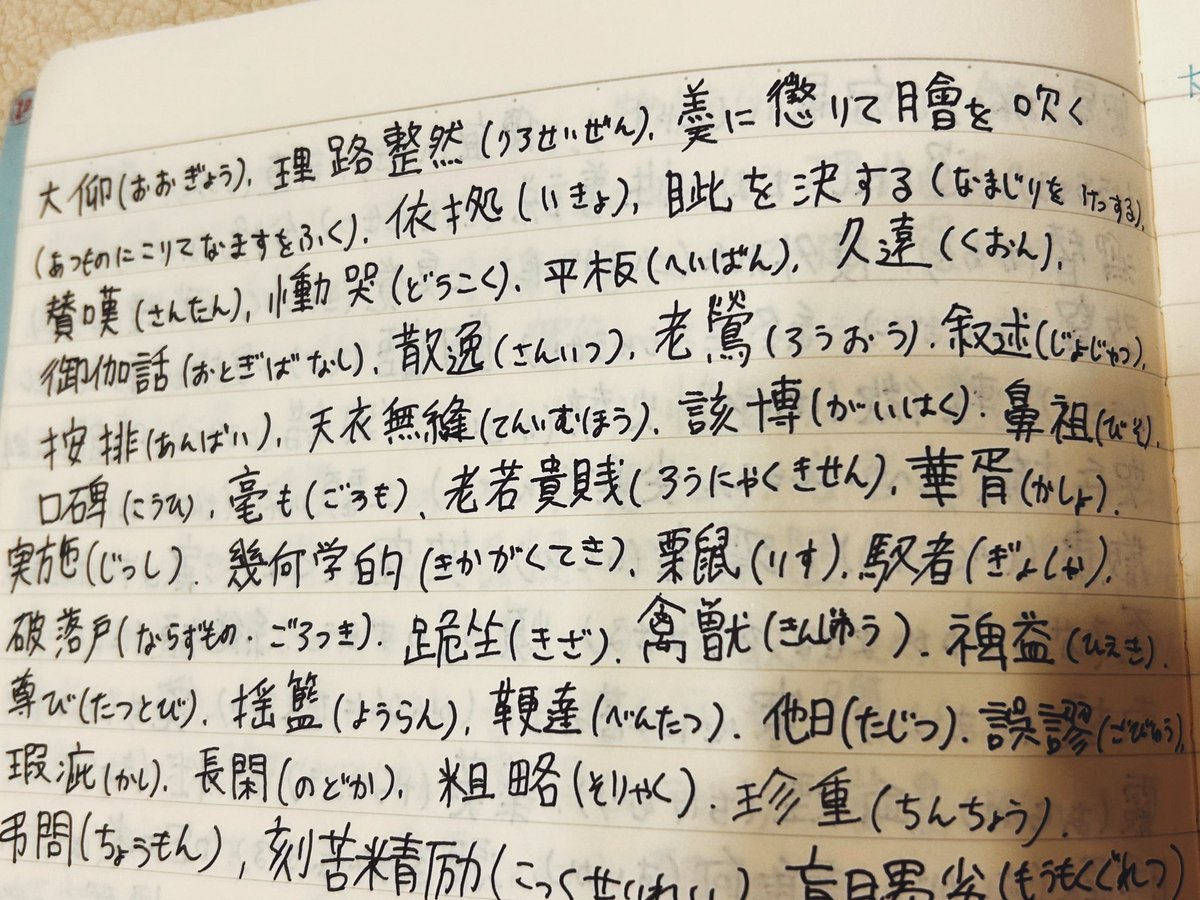 大仰(おおぎょう)、理路整然(りろせいぜん)、羹に懲りて膾を吹く
(あつものにこりてなますをふく)、依拠(いきょ)、眦を決する(なまじりをけっする)、
賛嘆(さんたん)、慟哭(どうこく)、平板(へいばん)、久遠(くおん)、
御伽話(おとぎばなし)、散逸(さんいつ)、老鶯(ろうおう)、叙述(じょじゅつ)、
按排(あんばい)、天衣無縫(てんいむほう)、該博(がいはく)、鼻祖(びそ)、
口碑(こうひ)、毫も(ごうも)、老若貴賎(ろうにゃくきせん)、華胥(かしょ)、
実施(じっし)、幾何学的(きかがくてき)、栗鼠(りす)、馭者(ぎょしゃ)、
破落戸(ならずもの・ごろつき)、跪坐(きざ)、禽獣(きんじゅう)、裨益(ひえき)、
尊び(たっとび)、揺籃(ようらん)、鞭達(べんたつ)、他日(たじつ)、誤謬(ごびゅう)、
瑕疵(かし)、長閑(のどか)、粗略(そりゃく)、珍重(ちんちょう)、
弔問(ちょうもん)、刻苦精励(こっくせいれい)、盲目愚劣(もうもくぐれつ)